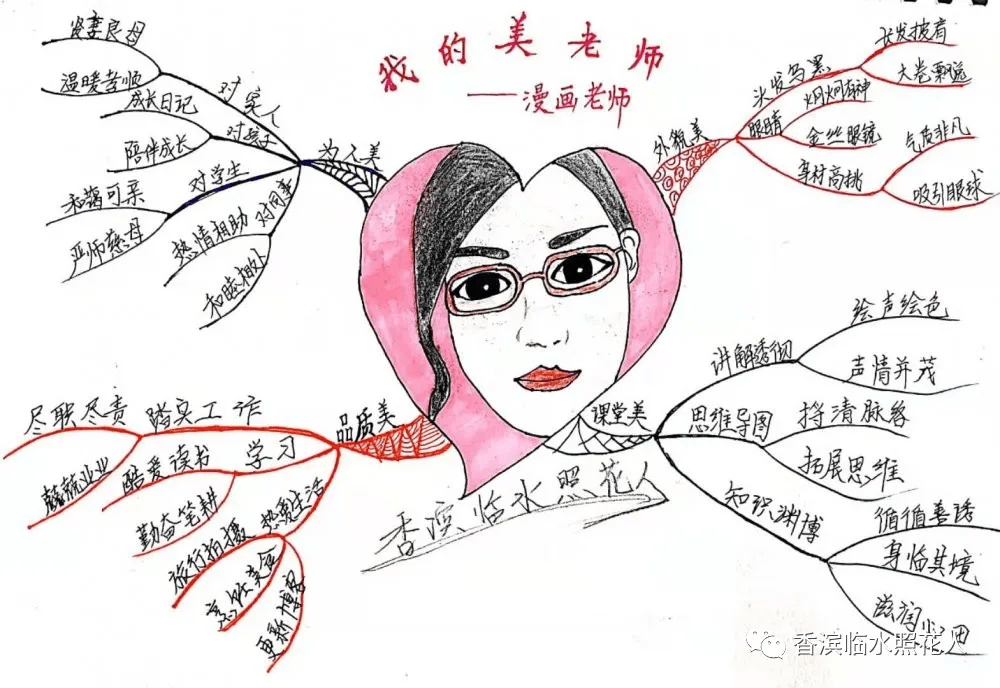 我的美老师
——漫画老师
为人美
对家人
贤妻良母
温暖孝顺
对孩子
成长日记
陪伴成长
对学生
和蔼可亲
严师慈母
对同事
热情相助
和睦相处
外貌美
头发乌黑
长发披肩
大卷飘逸
眼睛
炯炯有神
金丝眼镜
身材高挑
气质非凡
吸引眼球
品质美
踏实工作
尽职尽责
兢兢业业
学习
酷爱读书
勤奋笔耕
热爱生活
旅行拍摄
烹饪美食
更新博客
课堂美
讲解透彻
绘声绘色
声情并茂
思维导图
捋清脉络
拓展思维
知识渊博
循循善诱
身临其境
滋润心田
香滨临水照花人
香滨临水照花